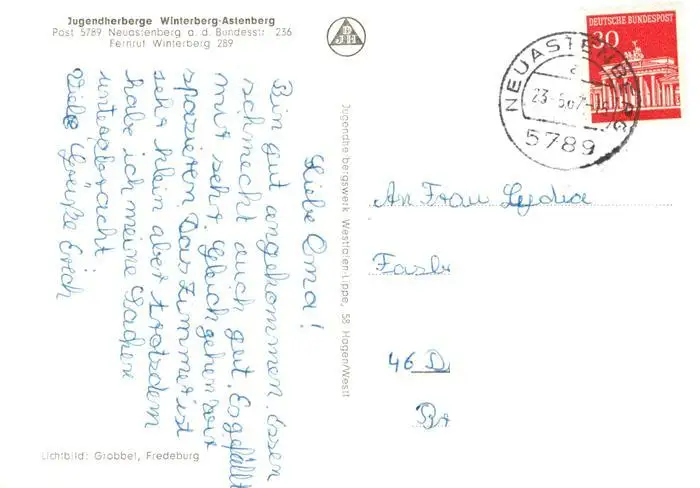 Jugendherberge Winterberg-Astenberg
Post 5789 Neuastenberg a. d. Bundesstr. 236
Fernruf Winterberg 289
DJH
Liebe Oma!
Bin gut angekommen. Essen
schmeckt auch gut. Es gefällt
mir sehr. Gleich gehen wir
spazieren. Das Zimmer ist
sehr klein aber trotzdem
habe ich meine Sachen
untergebracht
Viele Grüße Erich
Jugendherbergswerk Westfalen-Lippe, 58 Hagen/Westf
DEUTSCHE BUNDESPOST
30
NEUASTENBERG
a
5789
An Frau Lydia
46 D
Lichtbild: Grobbel, Fredeburg